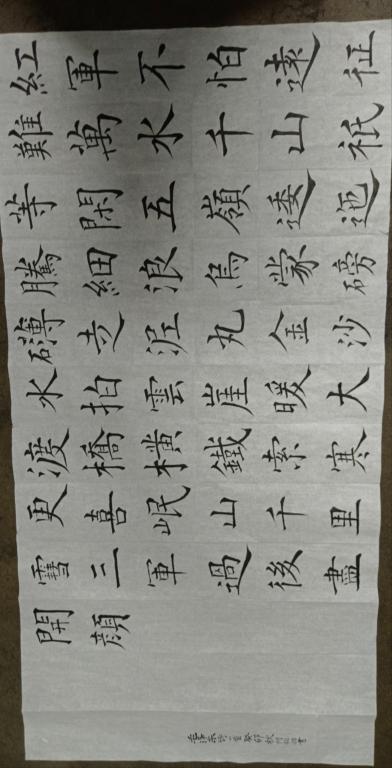 紅軍不怕遠征
難萬水千山祇
等閑五嶺逶迤
騰細浪烏蒙磅
礴走泥丸金沙
水拍雲崖暖大
渡橋橫鐵索寒
更喜岷山千里
雪三軍過後盡
開顏
毛澤東詩一首癸卯秋書